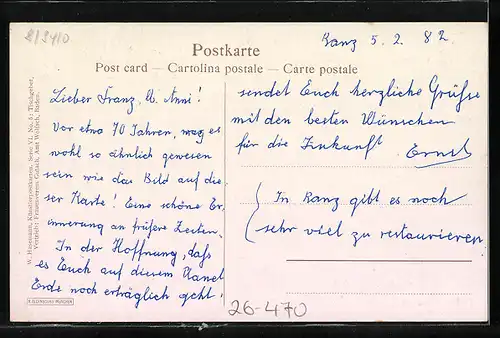 Banz 5. 2. 82
Postkarte
Post card — Cartolina postale — Carte postale
Lieber Franz, u. Anni!
Vor etwa 70 Jahren, mag es
wohl so ähnlich gewesen
sein wie das Bild auf die
ser Karte! Eine schöne Er
innerung an frühere Zeiten.
In der Hoffnung, daß
es Euch auf diesem Planet
Erde noch erträglich geht,
sendet Euch herzliche Grüße
mit den besten Wünschen
für die Zukunft
Ernst
In Banz gibt es noch
sehr viel zu restaurieren
W. Hasemann, Künstlerpostkarten, Serie VI, No. 5: Tischgebet.
Vertrieb: Frauenverein Gutach, Amt Wolfach, Baden.
26-470